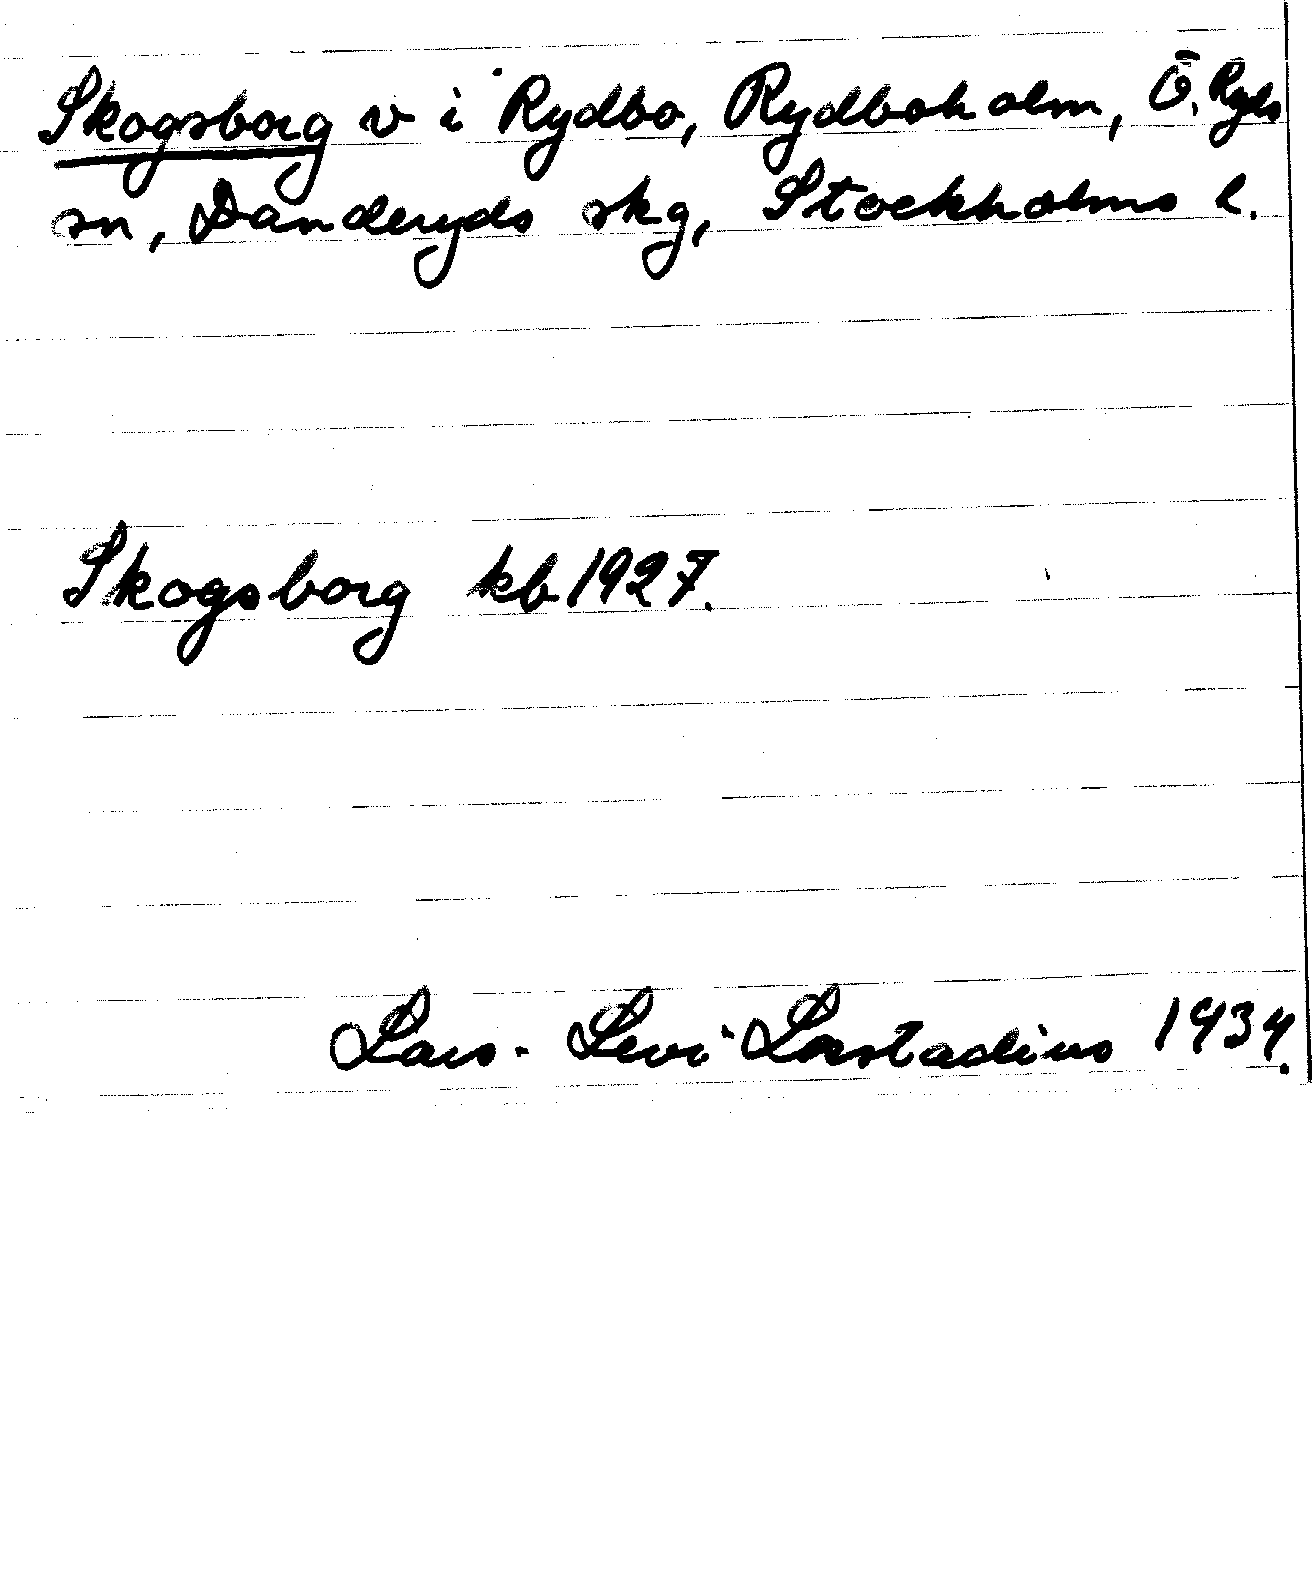 Skogsborg v i Rydbo, Rydboholm, Ö. Ryds
sn, Danderyds skg, Stockholms l.
Skogsborg kb 1927.
Lars-Levi Læstadius 1934.